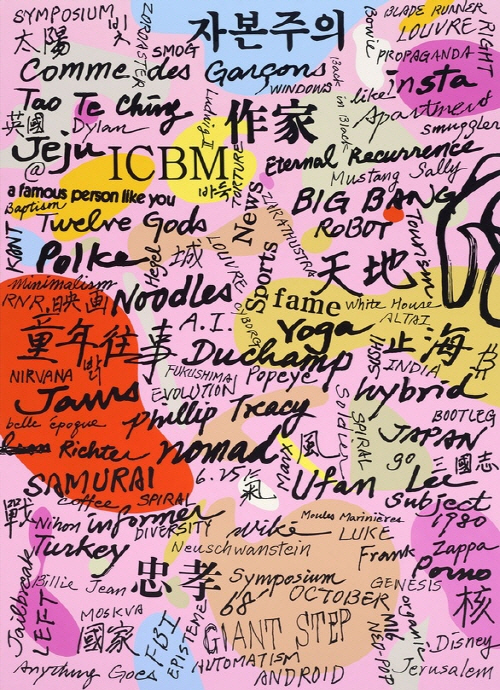 SYMPOSIUM 빛 ZOROASTER 자본주의 Bowie BLADE RUNNER
太陽 SMOG LOUVRE RIGHT
PROPAGANDA
Comme des Garçons Back in Black insta
WINDOWS like
Tao Te Ching Ludwig II Apartment
英國 Dylan 作家 smuggler
Jeju ICBM TORTURE Eternal Recurrence
@ Mustang Sally
a famous person like you 바둑 News BIG BANG
Baptism
Twelve Gods ZARATHUSTRA ROBOT Tourism
KANT Polke Hegel 城 LOUVRE 天地
minimalism Sports
RNR. 映画 Noodles fame White House
A.I. Yoga ALTAI
童年往事 Duchamp 止海
NIRVANA 밤 FUKUSHIMA Popeye INDIA
Jaws EVOLUTION hybrid
belle époque Phillip Treacy Soldier BOOTLEG
Richter nomad 風 SPIRAL JAPAN
go 三國志
SAMURAI 6.25 氣 Marx Ufan Lee
coffee SPIRAL Subject
戰 Nihon informer wike Moules Marinières 1980
DIVERSITY LUKE
Turkey Neuschwanstein Frank Zappa
Jailbreak Billie Jean 忠孝 Symposium GENESIS Porno
68' OCTOBER organic 核
LEFT MOSKVA FBI MI6
國家 EPISTEME GIANT STEP NEO-POP Disney
Anything Goes AUTOMATISM Jerusalem
ANDROID